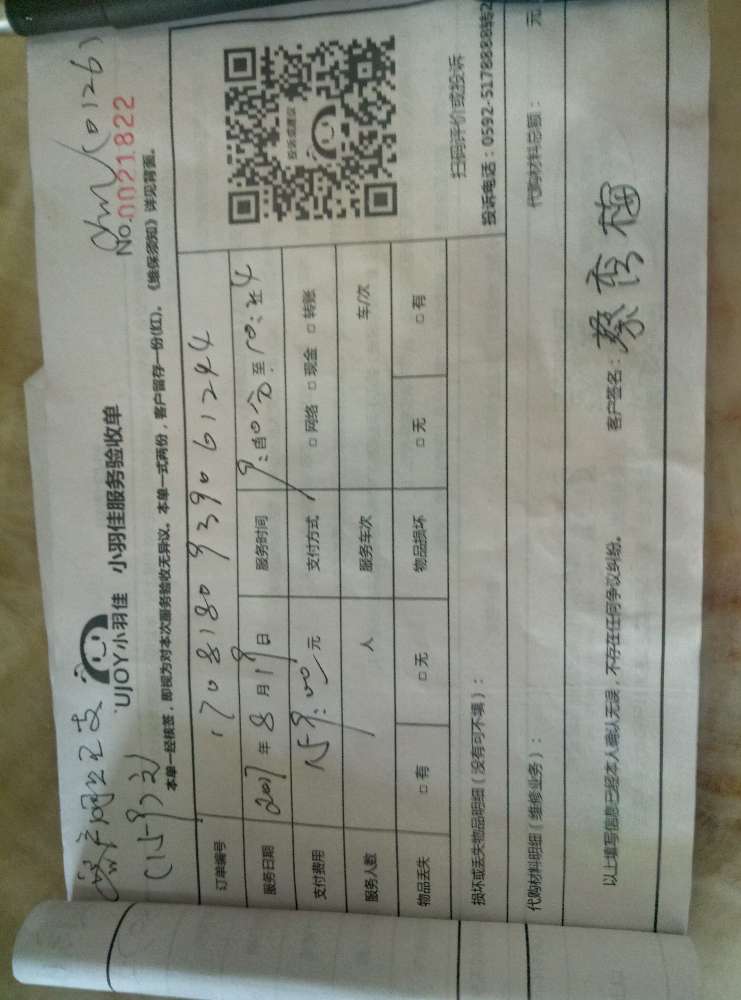 客户网上已支
(159元)
(0126)
UJOY小羽佳 小羽佳服务验收单
No.0021822
本单一经核签，即视为对本次服务验收无异议。本单一式两份，客户留存一份(红)。《维保须知》详见背面。
订单编号 170818093906 1244
服务日期 2017年8月19日 服务时间 至10:
支付费用 159.00元 支付方式 □网络 □现金 □转账
服务人数 人 服务车次 车/次
物品丢失 □有 □无 物品损坏 □无 □有
投诉或建议
扫码评价或投诉
投诉电话：0592-5178888转2
损坏或丢失物品明细（没有可不填）：
代购材料明细（维修业务）： 代购材料总额： 元
以上填写信息已经本人确认无误，不存在任何争议纠纷。 客户签名：蔡秀梅